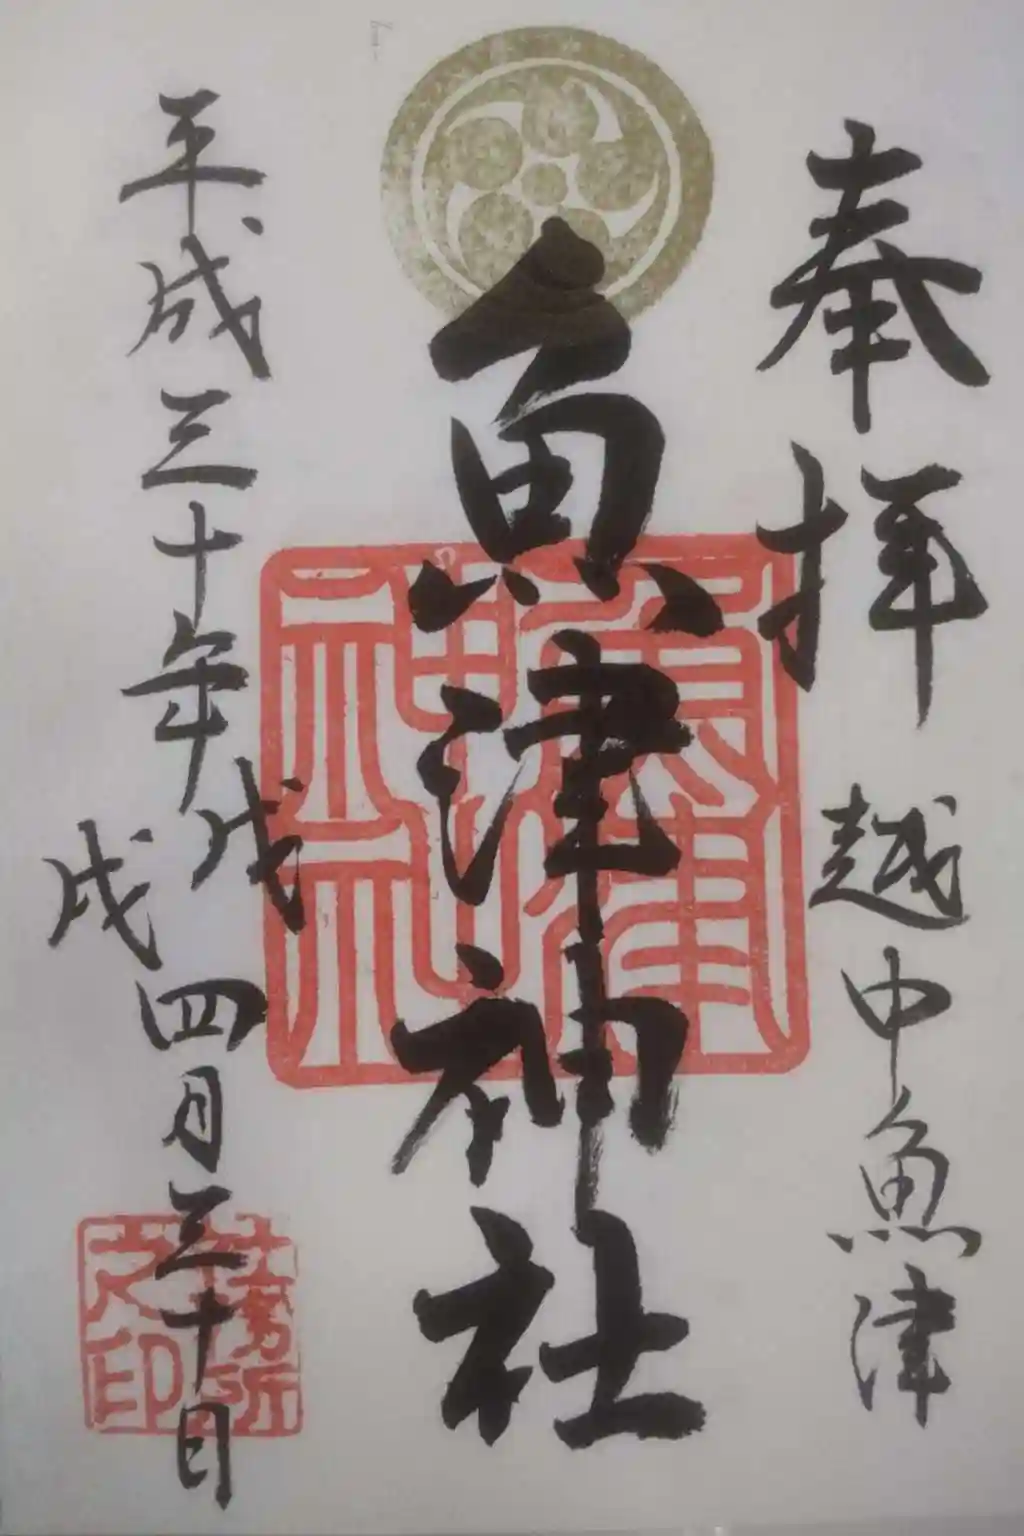 奉拝 越中魚津
魚津神社
平成三十年戊戌四月三十日
魚津
神社
社務所
之印